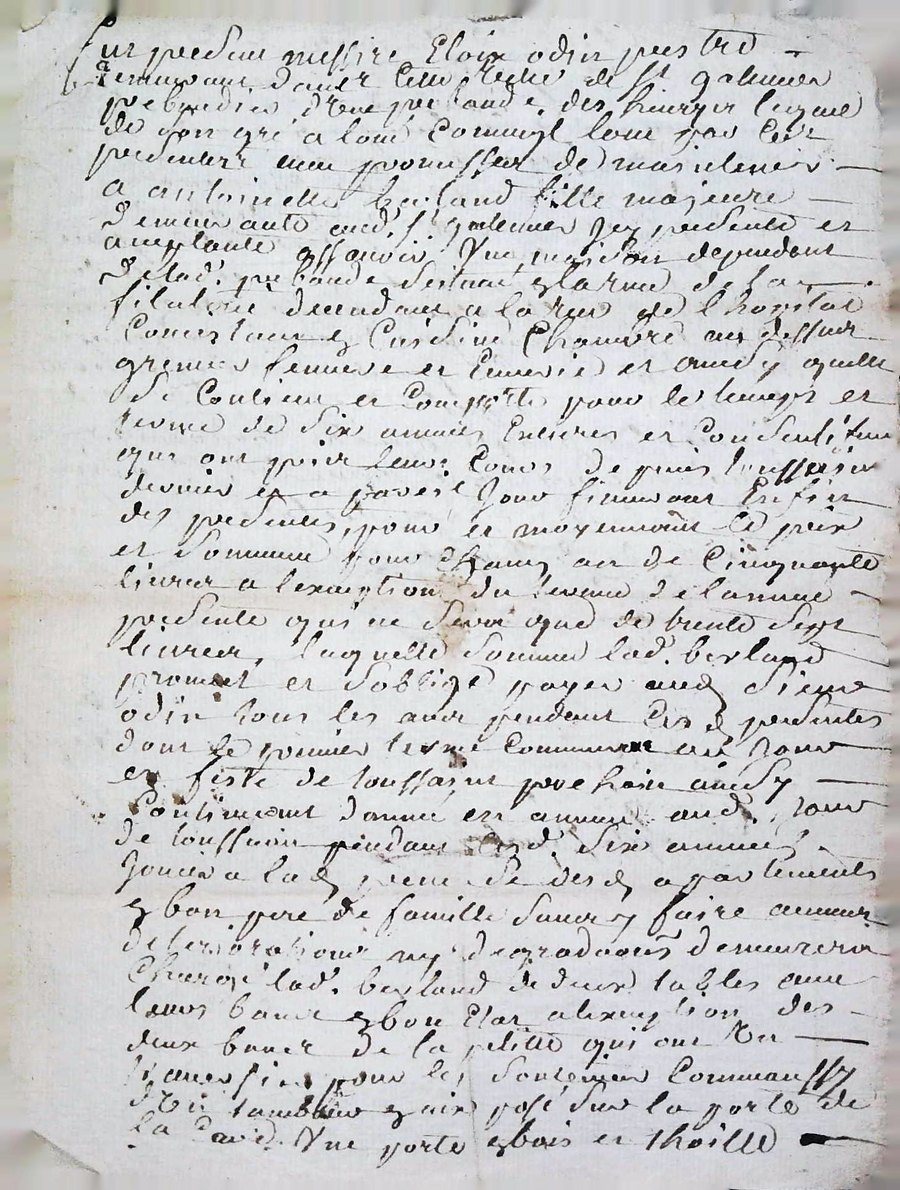 fut present messire Eloix odin prestre
demeurant dans cette ville de st galmier
prebendier d'une prebande des
de son gré a loué comme il loue par ces
presentes avec promesse de maintenir
a antoinette berland fille majeure
demeurante aud. st galmier icy presente et
acceptante assavoir Une maison dependant
de lad. prebande scituée en la rue de la
filaterie dessendant a la rue de l'hopital
Consistant en Cuisine Chambre au dessus
grenier et et ainsy quelle
se Contient et Comporte pour le temps et
terme de six années entieres et Consecutives
qui ont pris leurs Cours depuis toussaint
dernier et a pareil Jour finiront Enfin
des presentes, pour et moyennant le prix
et somme pour chacun an de Cinquante
livres a l'exception du revenu de l'année
presente qui ne sera que de trente sept
livres, laquelle somme lad. berland
promet et s'oblige payer aud. sieur
odin tous les ans pendant Ces presentes
dont le premier terme Commencera au jour
et feste de toussaint prochain ainsy
Continuant d'année en année aud. jour
de toussaint pendant lesd. Six années
Jouira lad. preneuse desd. apartements
en bon pere de famille sans y faire aucunes
deteriorations ny degradaons demeurera
Chargé lad. berland de deux tables avec
leurs bancs en bon Etat a l'exception des
deux bancs de la petite qui ont Une
traversier pour les soutenir Comme aussy
d'Un en aix posé sur la porte de
la Cave Une porte en bois et